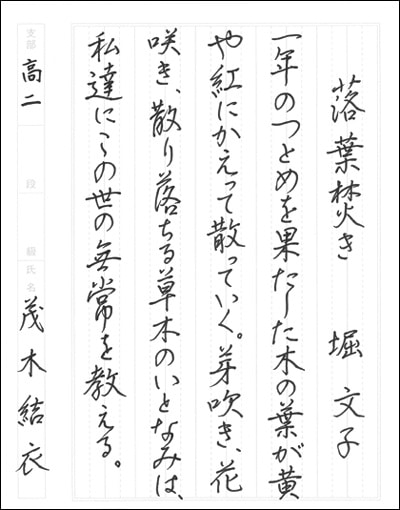 落葉焚き 堀文子
一年のつとめを果たした木の葉が黄
や紅にかえって散っていく。芽吹き、花
咲き、散り落ちる草木のいとなみは、
私達にこの世の無常を教える。
支部 高二 段 級 氏名 茂木結衣